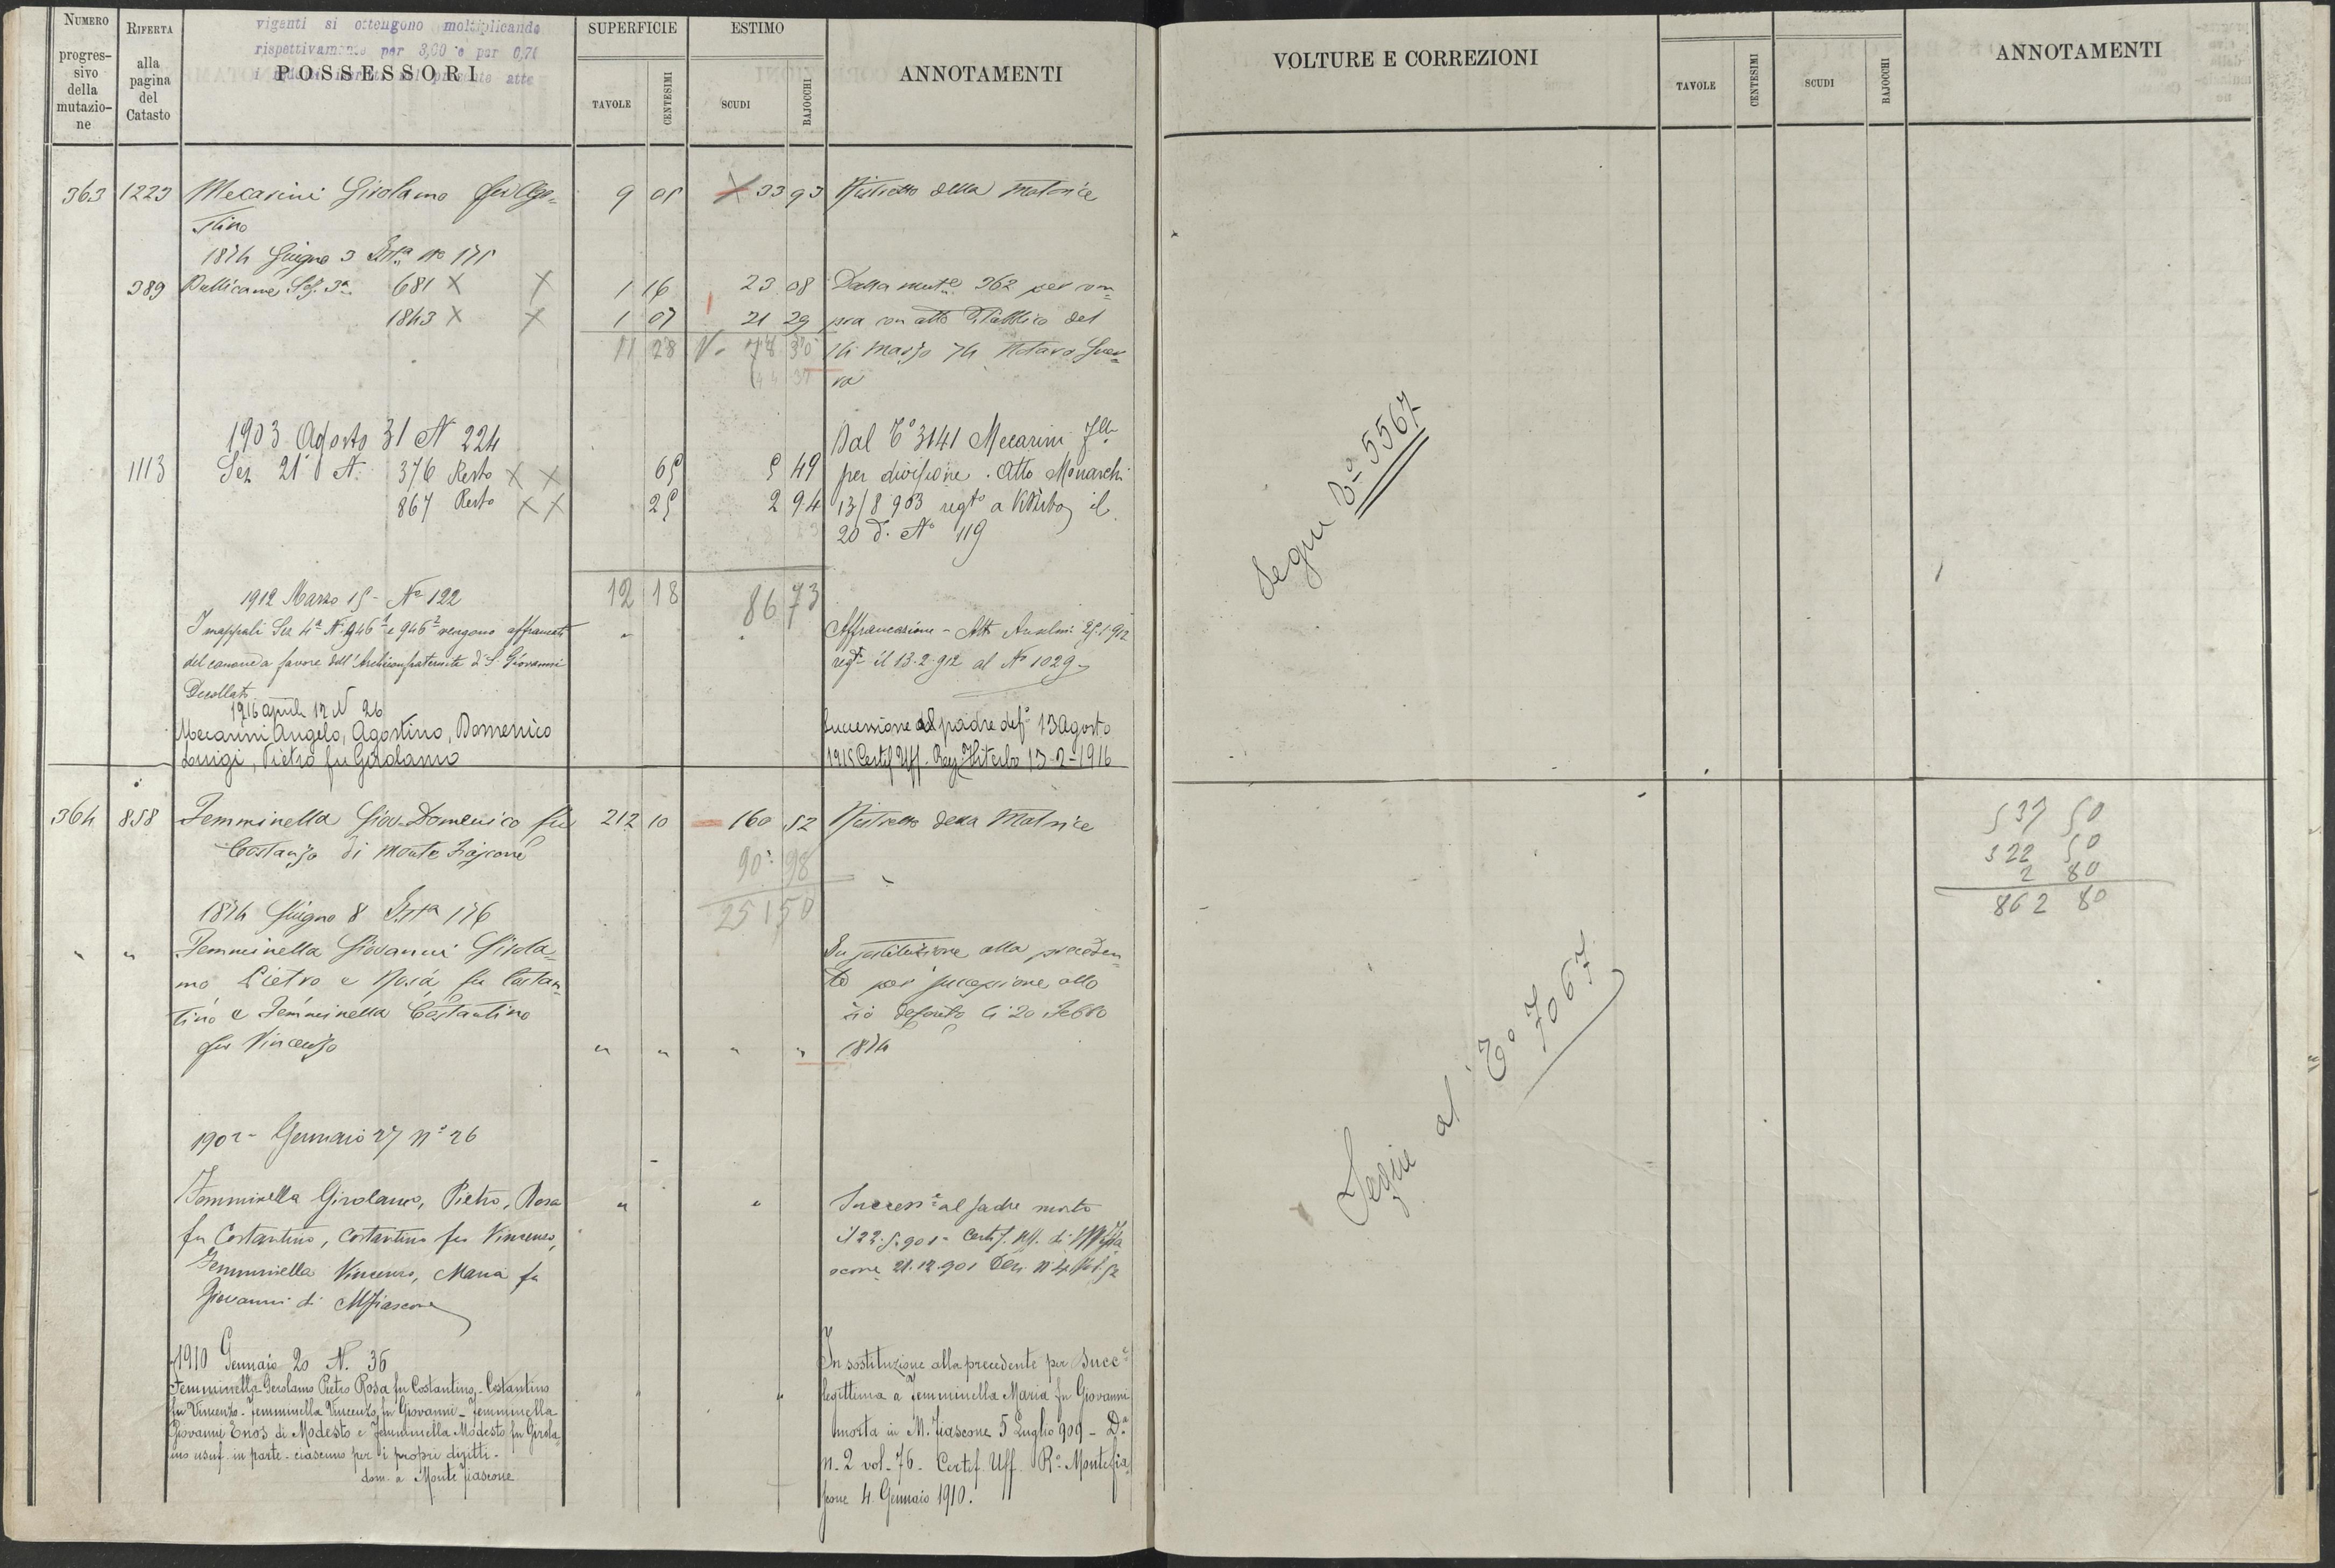 NUMERO progressivo della mutazione
RIFERTA alla pagina del Catasto
vigenti si ottengono moltiplicando
rispettivamente per 3,00 e per 0,70
POSSESSORI
SUPERFICIE
TAVOLE
CENTESIMI
ESTIMO
SCUDI
BAJOCCHI
ANNOTAMENTI
363 1223 Mecarini Girolamo fu Ago= 9 05 33 93 Ristretto della Matrice
stino
1874 Giugno 3 No 175
389 681 X X 1 16 23 08 Dalla mut.e 362 per com=
1843 X X 1 07 21 29 pra con atto Pubblico del
11 28 78 30 14 Marzo 74 Notaro Guer=
44 37 ra
1903 Agosto 31 N 224 Dal T.o 3141 Mecarini flli
1113 Sez 21a N. 376 Resto X X 65 5 49 per divisione. Atto Monarchi
867 Resto X X 25 2 94 13/8 903 regto a Viterbo il
20 d. No 119
12 18 86 73
1912 Marzo 15 - No 122
I mappali Sez 4a N. 946 1 e 946 2 vengono affrancati " " Affrancazione - Atto Anselmi 25.1.912
del canone a favore dell'Archiconfraternita di S. Giovanni regto il 13.2.912 al No 1029
Decollato
1916 aprile 12 N 26
Mecarini Angelo, Agostino, Domenico Successione al padre def.o 13 Agosto
Luigi, Pietro fu Girolamo 1915 Certif Uff. Reg. Viterbo 13-2-1916
364 858 Femminella Giov. Domenico fu 212 10 160 52 Ristretto della Matrice
Costanzo di Monte Fiascone
90 98
1874 Giugno 8 176 251 50
" " Femminella Giovanni Girola= In sostituzione alla preceden=
mo Pietro e Rosa fu Costan= te per successione allo
tino e Femminella Costantino zio defunto li 20 Febbo
fu Vincenzo " " " " 1874
1902 - Gennaio 27 No 26
Femminella Girolamo, Pietro, Rosa " " Success.e al padre morto
fu Costantino, Costantino fu Vincenzo, il 22.5.901 - Certif. Uff. di Mfia
Femminella Vincenzo, Maria fu scone 21.12.901 Den. N 4 Vol. 52
Giovanni di Mfiascone
1910 Gennaio 20 N. 36 In sostituzione alla precedente per Succ.e
Femminella Gerolamo Pietro Rosa fu Costantino, - Costantino legittima a Femminella Maria fu Giovanni
fu Vincenzo - Femminella Vincenzo fu Giovanni - Femminella morta in M. Fiascone 5 Luglio 909 - D.a
Giovanni Enos di Modesto e Femminella Modesto fu Girola n. 2 vol. 76. Certif. Uff. R.o Montefia
mo usuf. in parte - ciascuno per i propri diritti - scone 4 Gennaio 1910.
dom. a Monte Fiascone
VOLTURE E CORREZIONI
TAVOLE
CENTESIMI
SCUDI
BAJOCCHI
ANNOTAMENTI
Segue T.o 5567
537 50
322 50
2 80
862 80
Segue al T.o 7067